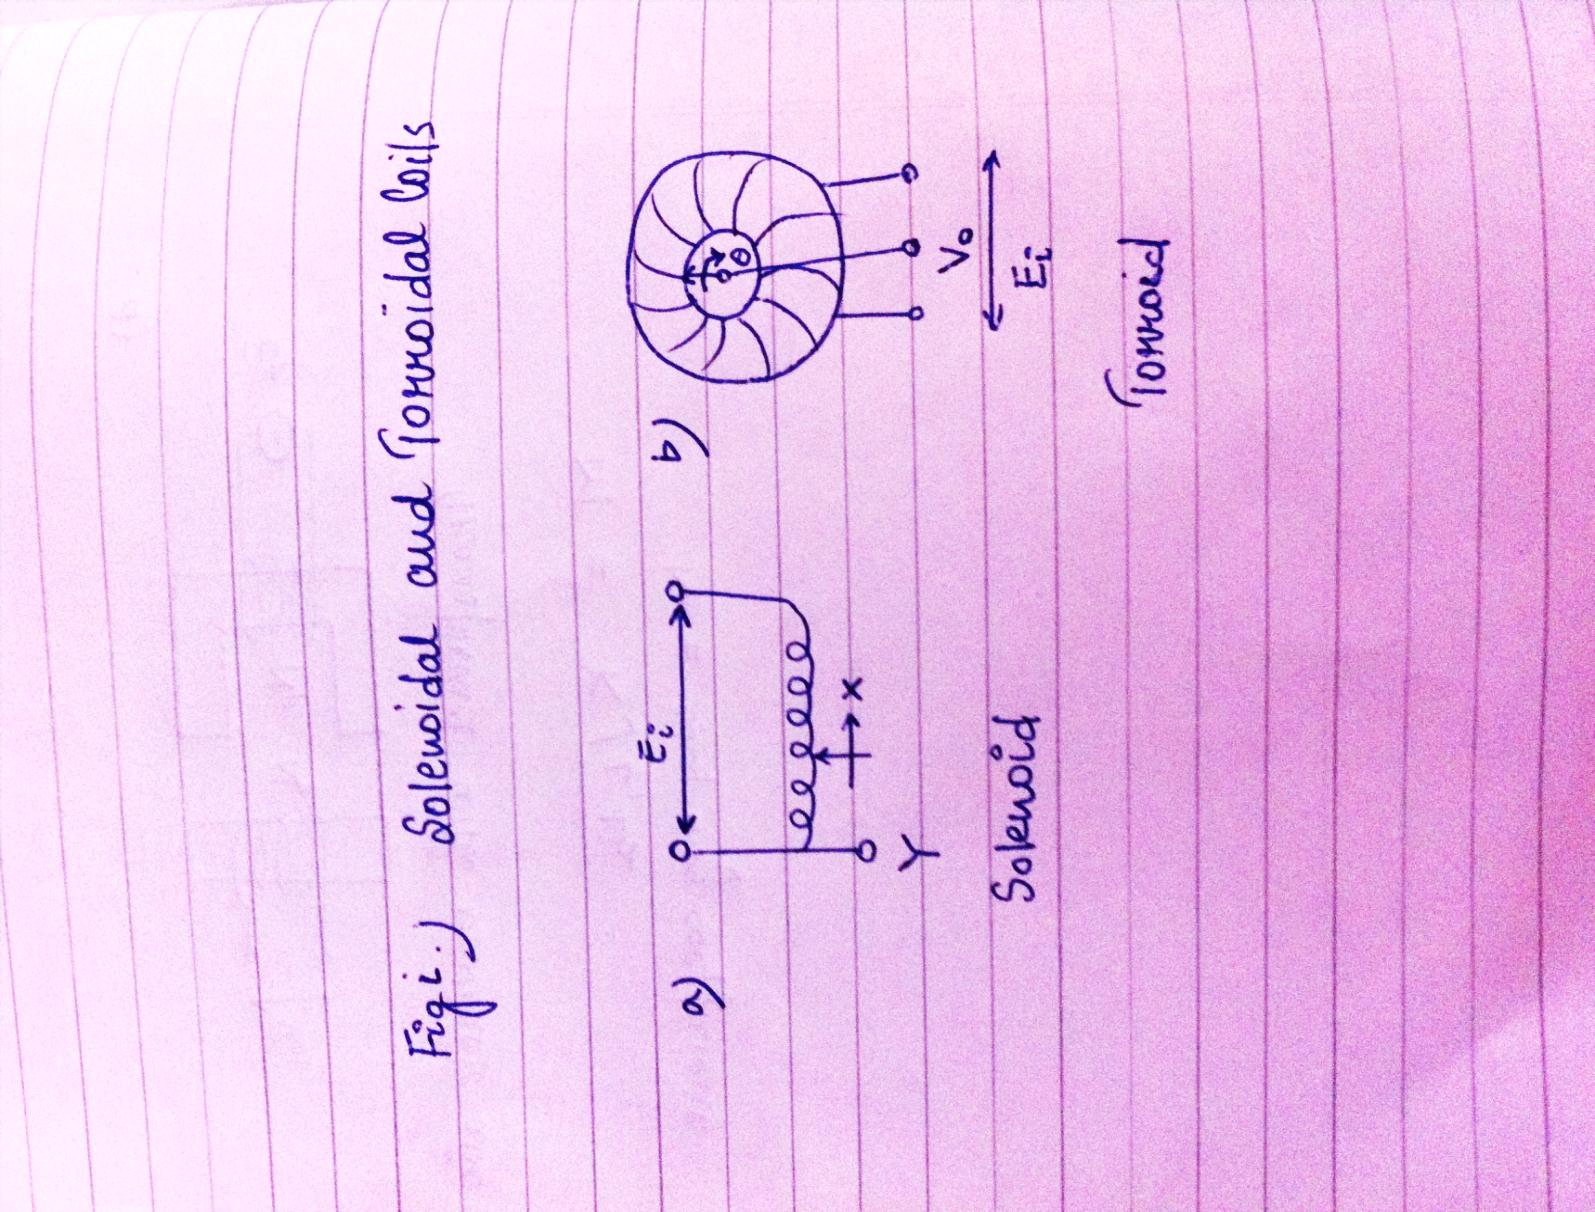 Fig i.) Solenoidal and Torroidal Coils
a)
Ei
x
Y
Solenoid
b)
θ
Vo
Ei
Torroid